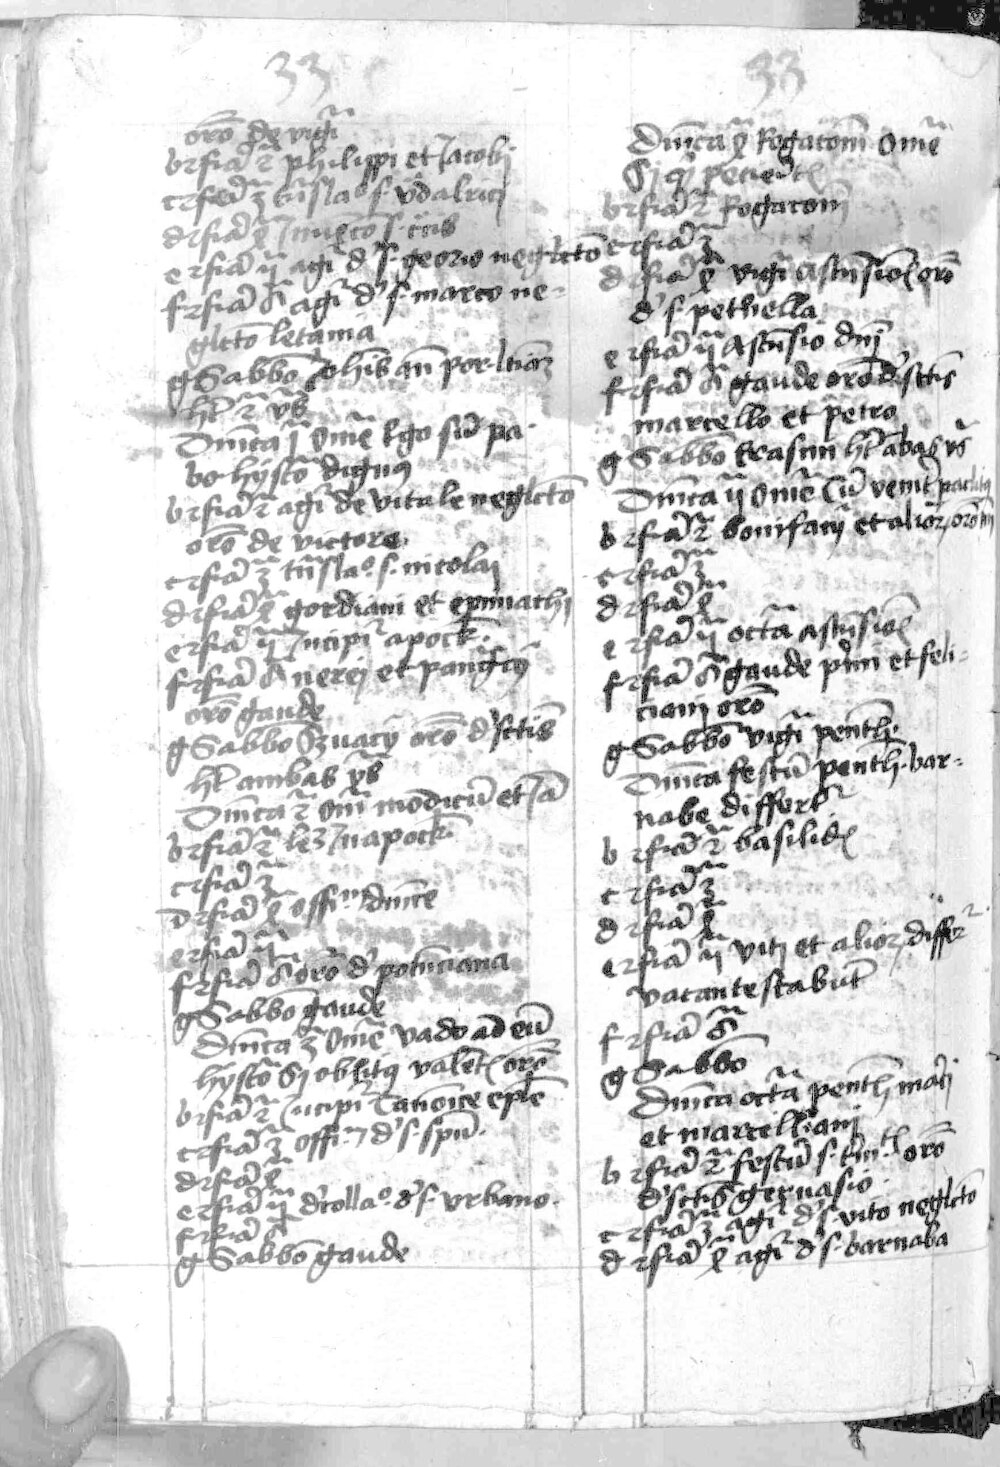 33
oro de vigi
b r feria 2 philippi et Jacobi
c r feria 3 tnslao s vdalrici
d r feria 4 Inuēcio s cūs
e r feria v agi d s georio neglcto
f r feria 6 agi d s marco ne-
glcto letania
g Sabbo Johis an por ltinā
hʼ 2 vs
Dnica j Ome Ego sū pa
bo hysto dignus
b r feria 2 agi de vitale neglcto
oro de victore
c r feria 3 tnslao s nicolai
d r feria 4 gordiani et epimachi
e r feria v Incipi apock
f r feria 6 nerei et pangcij
oro gaude
g Sabbo Suacij oro d scttis
hʼ ambas vs
Dnica 2 Om modicū et Ja
b r feria 2 lez In apock
c r feria 3
d r feria 4 offm dnice
e r feria v
f r feria 6 oro d potnciana
g Sabbo gaude
Dnica 3 Ome vado ad eū
hysto Si oblitus valet oro
b r feria 2 Incipi Canoice eple
c r feria 3 offi d s spū
d r feria 4
e r feria v dcollao d s vrbano
f r feria 6
g Sabbo gaude
33
Dnica 4 Rogacom Ome
Si q petierit
b r feria 2 Rogacom
c r feria 3
d r feria 4 vigi Ascnsiois oro
d s pethella
e r feria v Ascnsio dnj
f r feria 6 gaude oro d scttis
marcello et petro
g Sabbo Erasmi hʼ abas vs
Dnica ij Ome Cū venit paclitus
b r feria 2 bonifacij et alior oro
c r feria 3
d r feria 4
e r feria v octa ascnsiois
f r feria 6 gaude pmi et feli-
ciani oro
g Sabbo vigi penth
Dnica festū penth bar-
nabe differt
b r feria 2 basilid
c r feria 3
d r feria 4
e r feria v viti et alior differ
vacante stabut
f r feria 6
g Sabbo
Dnica octa penth maci
et marcelliani
b r feria 2 festū s tnit oro
d scttis geruasio
c r feria 3 agi d s vito neglcto
d r feria 4 agi d s barnaba